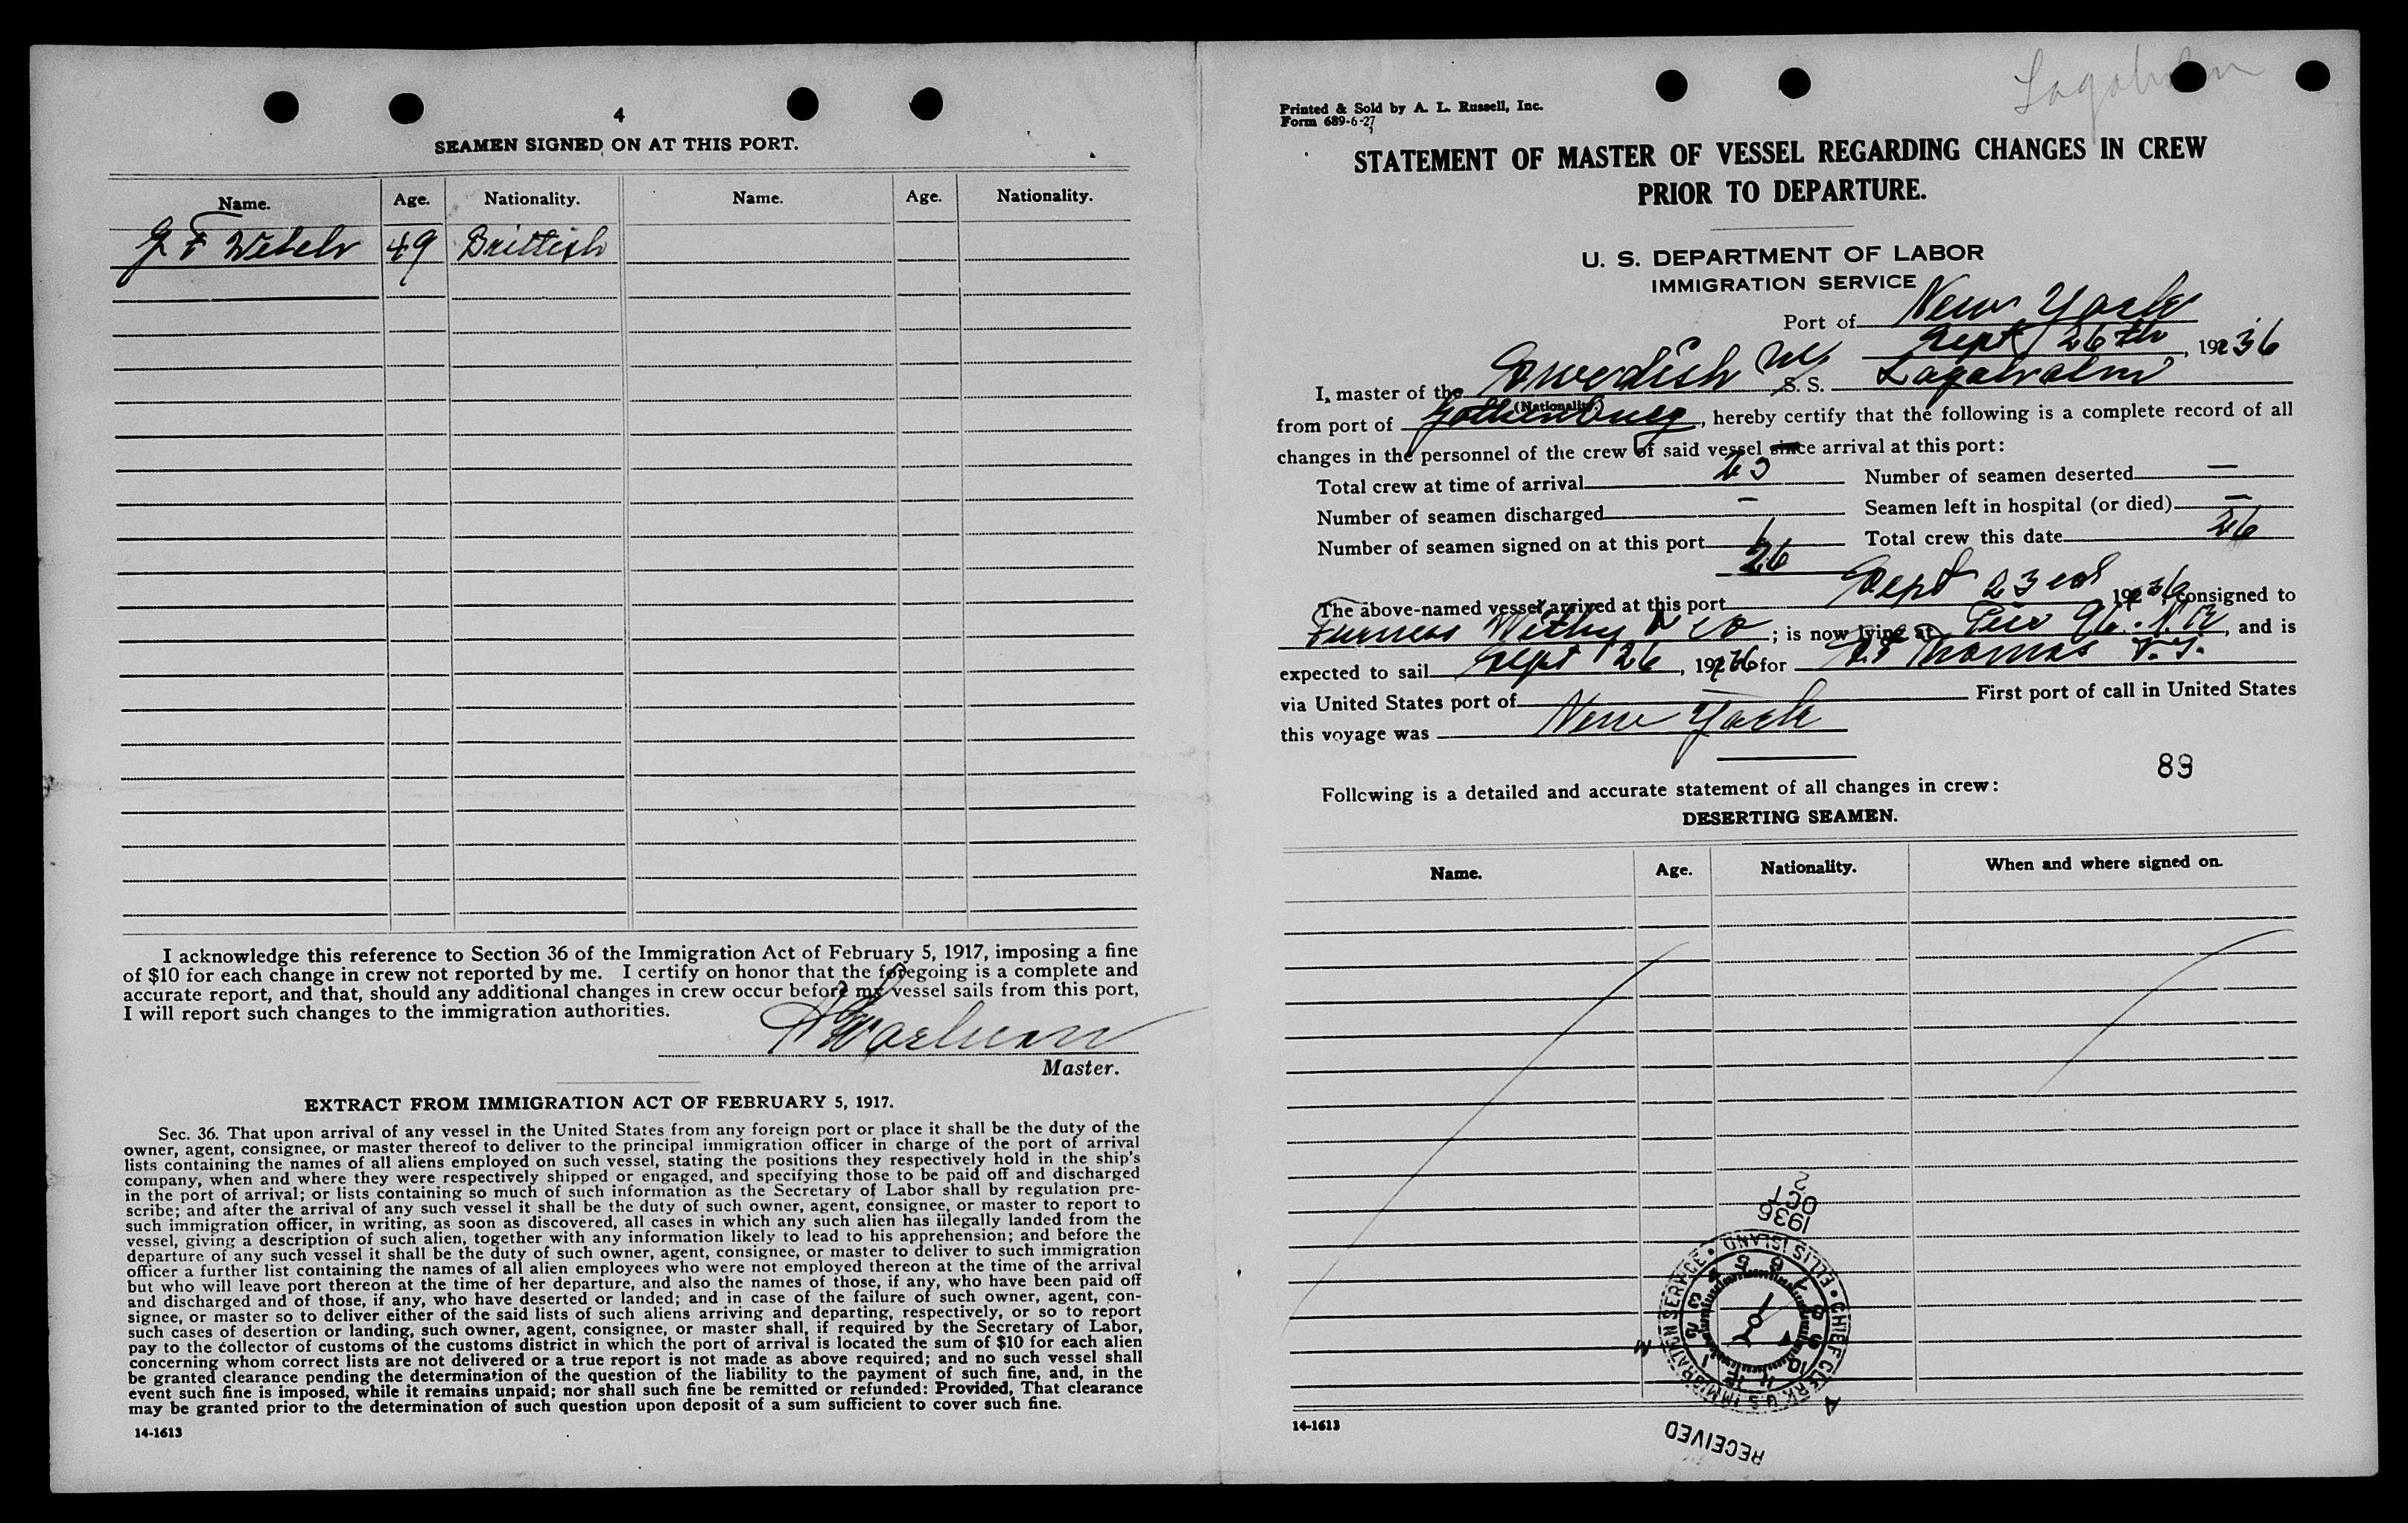 4
SEAMEN SIGNED ON AT THIS PORT.
Name. Age. Nationality. Name. Age. Nationality.
49 Brittish
I acknowledge this reference to Section 36 of the Immigration Act of February 5, 1917, imposing a fine
of $10 for each change in crew not reported by me. I certify on honor that the foregoing is a complete and
accurate report, and that, should any additional changes in crew occur before my vessel sails from this port,
I will report such changes to the immigration authorities.
Master.
EXTRACT FROM IMMIGRATION ACT OF FEBRUARY 5, 1917.
Sec. 36. That upon arrival of any vessel in the United States from any foreign port or place it shall be the duty of the
owner, agent, consignee, or master thereof to deliver to the principal immigration officer in charge of the port of arrival
lists containing the names of all aliens employed on such vessel, stating the positions they respectively hold in the ship's
company, when and where they were respectively shipped or engaged, and specifying those to be paid off and discharged
in the port of arrival; or lists containing so much of such information as the Secretary of Labor shall by regulation pre-
scribe; and after the arrival of any such vessel it shall be the duty of such owner, agent, consignee, or master to report to
such immigration officer, in writing, as soon as discovered, all cases in which any such alien has illegally landed from the
vessel, giving a description of such alien, together with any information likely to lead to his apprehension; and before the
departure of any such vessel it shall be the duty of such owner, agent, consignee, or master to deliver to such immigration
officer a further list containing the names of all alien employees who were not employed thereon at the time of the arrival
but who will leave port thereon at the time of her departure, and also the names of those, if any, who have been paid off
and discharged and of those, if any, who have deserted or landed; and in case of the failure of such owner, agent, con-
signee, or master so to deliver either of the said lists of such aliens arriving and departing, respectively, or so to report
such cases of desertion or landing, such owner, agent, consignee, or master shall, if required by the Secretary of Labor,
pay to the collector of customs of the customs district in which the port of arrival is located the sum of $10 for each alien
concerning whom correct lists are not delivered or a true report is not made as above required; and no such vessel shall
be granted clearance pending the determination of the question of the liability to the payment of such fine, and, in the
event such fine is imposed, while it remains unpaid; nor shall such fine be remitted or refunded: Provided, That clearance
may be granted prior to the determination of such question upon deposit of a sum sufficient to cover such fine.
14-1613
Lagaholm
Printed & Sold by A. L. Russell, Inc.
Form 689-6-27
STATEMENT OF MASTER OF VESSEL REGARDING CHANGES IN CREW
PRIOR TO DEPARTURE.
U. S. DEPARTMENT OF LABOR
IMMIGRATION SERVICE
Port of New York
Sept 26th, 1936
I, master of the Swedish S. S. Lagaholm
(Nationality.)
from port of Gothenburg, hereby certify that the following is a complete record of all
changes in the personnel of the crew of said vessel since arrival at this port:
Total crew at time of arrival 25 Number of seamen deserted —
Number of seamen discharged — Seamen left in hospital (or died) —
Number of seamen signed on at this port 1 Total crew this date 26
26
The above-named vessel arrived at this port Sept 23rd 1936, consigned to
Furness Withy & Co; is now lying at Pier 96. N. R, and is
expected to sail Sept 26, 1936 for St Thomas V. I.
via United States port of — First port of call in United States
this voyage was New York
89
Following is a detailed and accurate statement of all changes in crew:
DESERTING SEAMEN.
Name. Age. Nationality. When and where signed on.
1936
OCT
2
ELLIS ISLAND • CHIEF CLERK U.S. IMMIGRATION SERVICE •
RECEIVED
14-1613